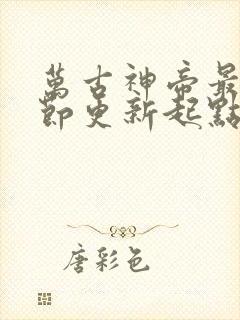 萬古神帝最
節更新起點
唐彩色